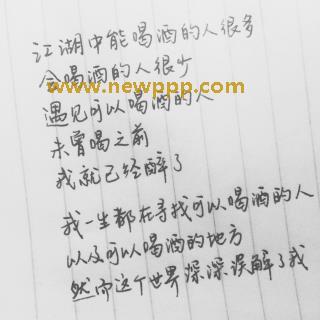 江湖中能喝酒的人很多
会喝酒的人很少
www.newppp.com
遇见可以喝酒的人
未曾喝之前
我就已经醉了
我一生都在寻找可以喝酒的人
以及可以喝酒的地方
然而这个世界深深误解了我